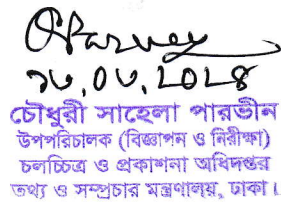 ১৩.০৩.২০২৪
চৌধুরী সাহেলা পারভীন
উপপরিচালক (বিজ্ঞাপন ও নিরীক্ষা)
চলচ্চিত্র ও প্রকাশনা অধিদপ্তর
তথ্য ও সম্প্রচার মন্ত্রণালয়, ঢাকা।